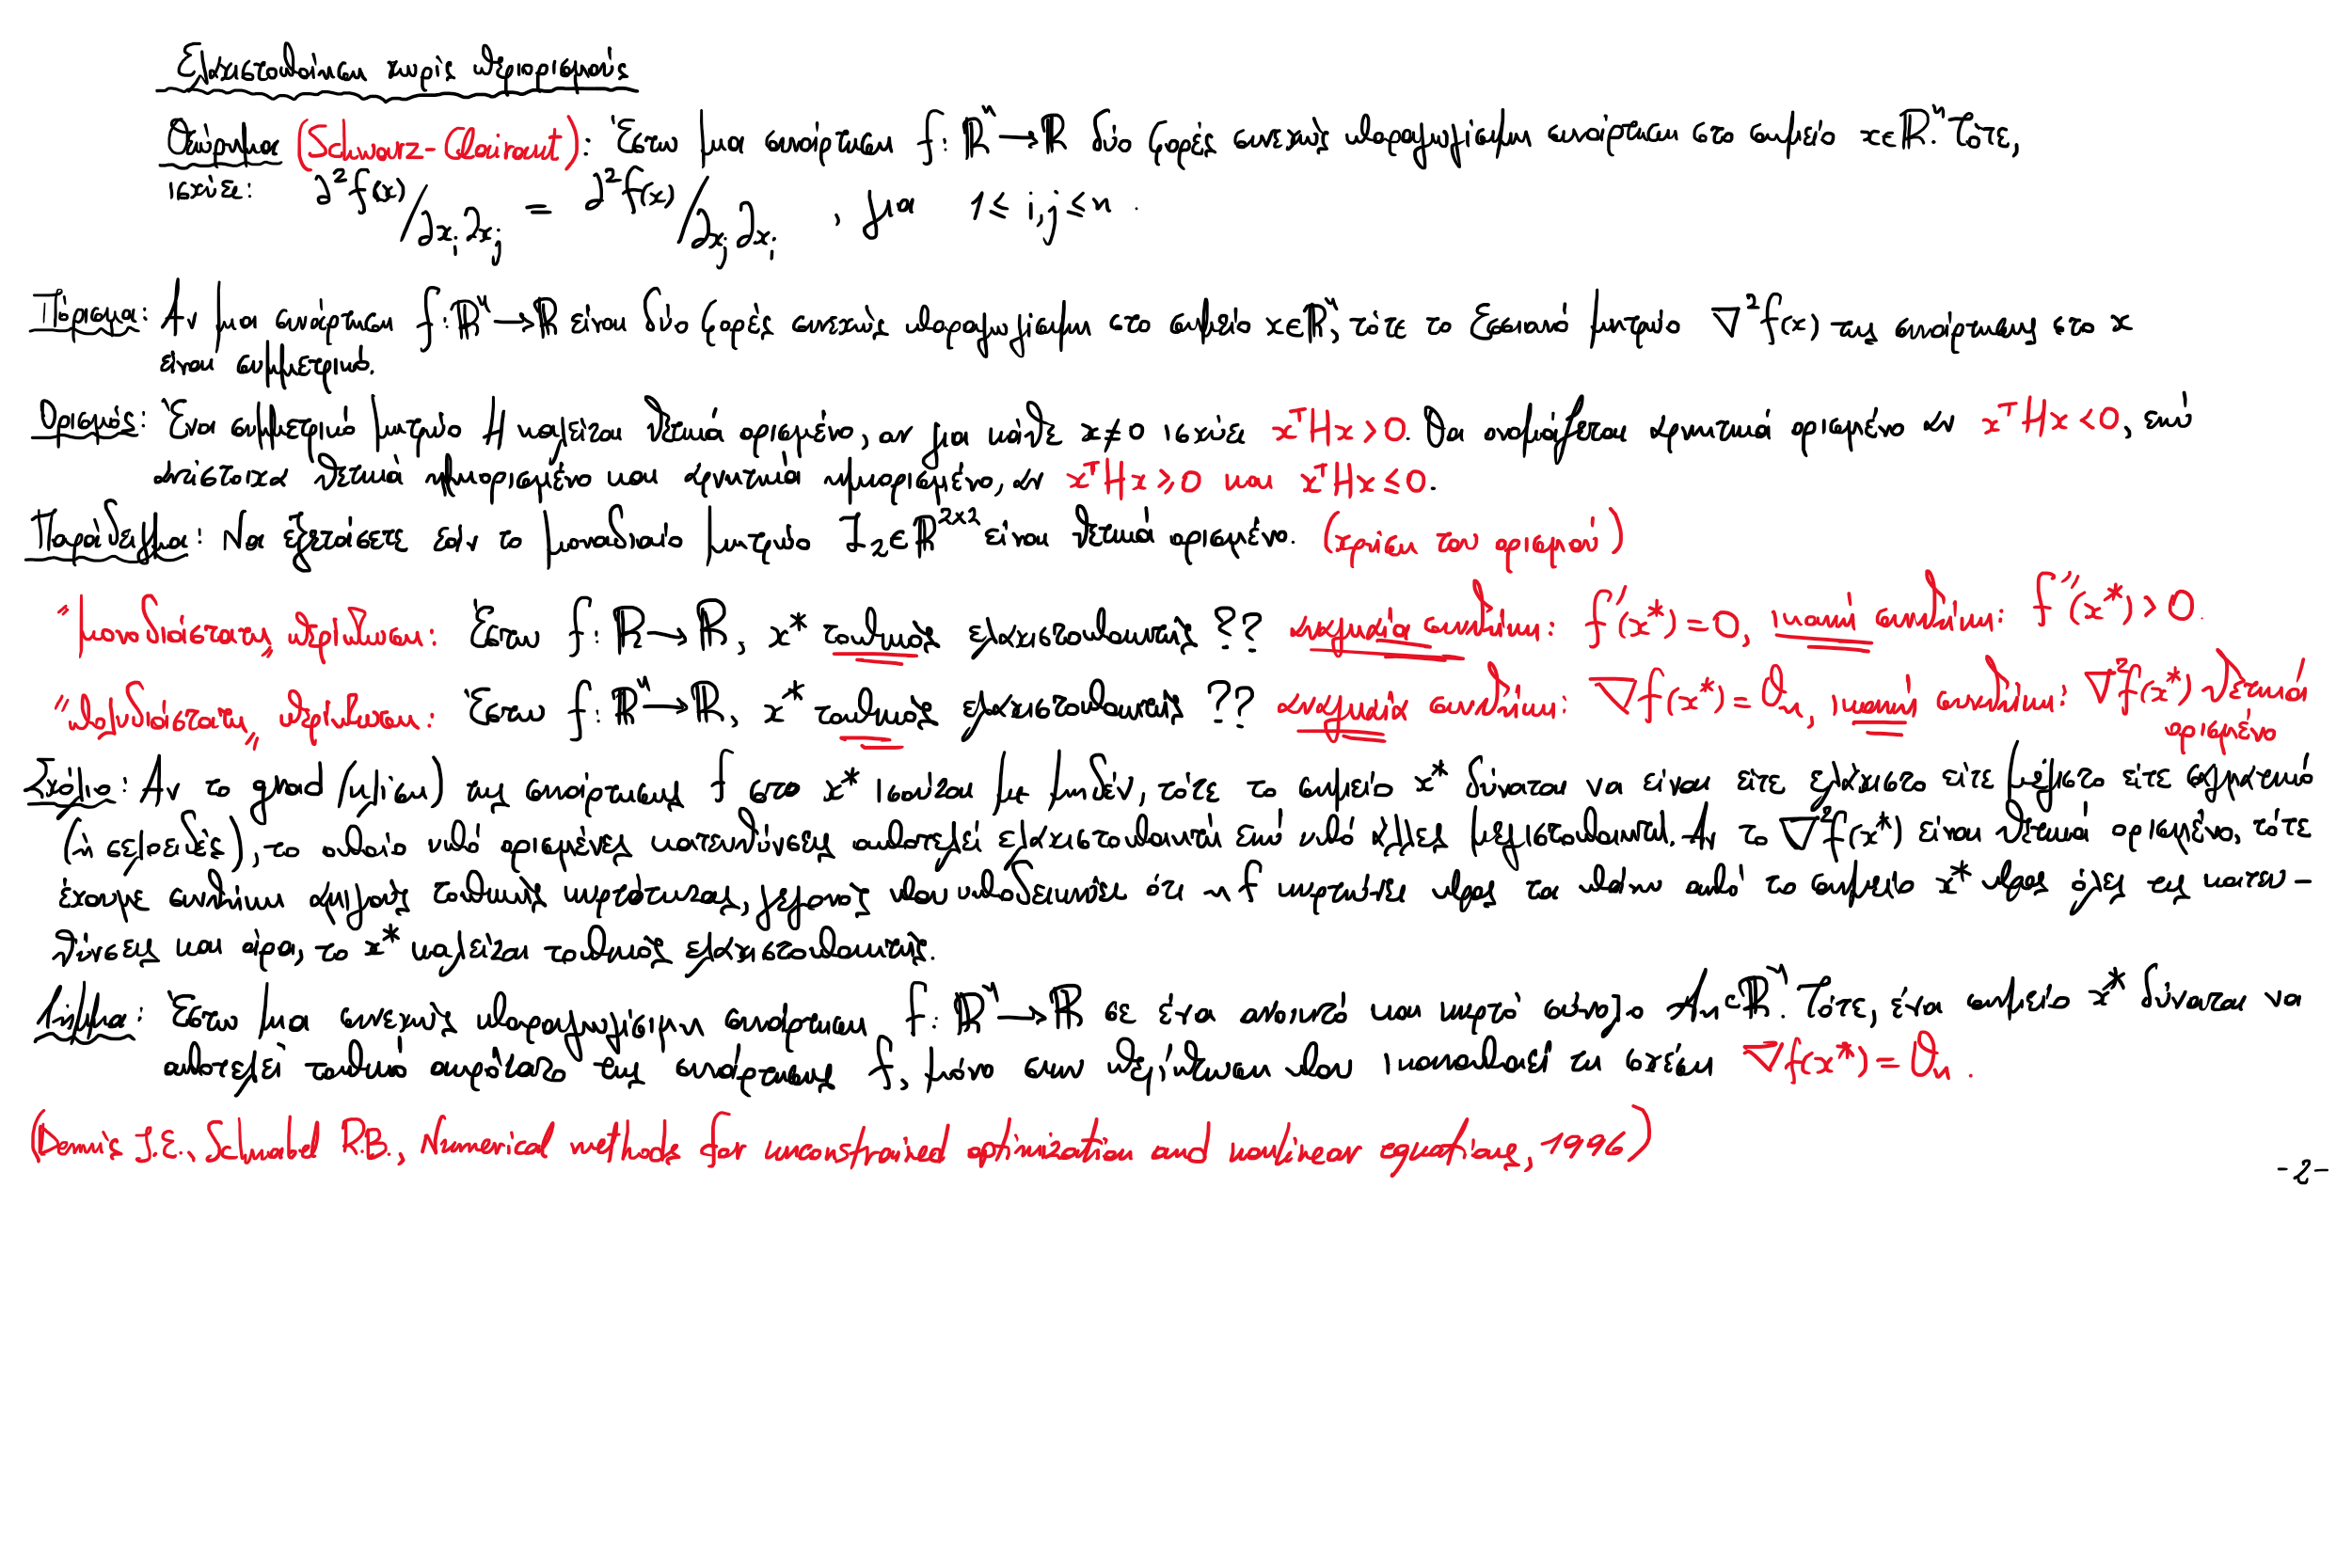 Ελαχιστοποίηση χωρίς περιορισμούς
Θεώρημα (Schwarz-Clairaut): Έστω μια συνάρτηση f: ℝⁿ → ℝ δύο φορές συνεχώς παραγωγίσιμη συνάρτηση στο σημείο x∈ℝⁿ. Τότε,
ισχύει: ∂²f(x)/∂xᵢ∂xⱼ = ∂²f(x)/∂xⱼ∂xᵢ , για 1 ≤ i,j ≤ n.
Πόρισμα: Αν μια συνάρτηση f: ℝⁿ → ℝ είναι δύο φορές συνεχώς παραγωγίσιμη στο σημείο x∈ℝⁿ, τότε το εσσιανό μητρώο ∇²f(x) της συνάρτησης στο x
είναι συμμετρικό.
Ορισμός: Ένα συμμετρικό μητρώο H καλείται θετικά ορισμένο, αν για κάθε x≠0 ισχύει xᵀHx > 0. Θα ονομάζεται αρνητικά ορισμένο αν xᵀHx < 0, ενώ
αντίστοιχα θετικά ημιορισμένο και αρνητικά ημιορισμένο, αν xᵀHx ≥ 0 και xᵀHx ≤ 0.
Παράδειγμα: Να εξετάσετε εάν το μοναδιαίο μητρώο I₂∈ℝ²ˣ² είναι θετικά ορισμένο. (χρήση του ορισμού)
"μονοδιάστατη" περίπτωση: Έστω f: ℝ → ℝ, x* τοπικός ελαχιστοποιητής ?? αναγκαία συνθήκη: f'(x*) = 0, ικανή συνθήκη: f''(x*) > 0.
"πολυδιάστατη" περίπτωση: Έστω f: ℝⁿ → ℝ, x* τοπικός ελαχιστοποιητής ?? αναγκαία συνθήκη: ∇f(x*) = 0ₙ, ικανή συνθήκη: ∇²f(x*) θετικά
ορισμένο
Σχόλιο: Αν το grad (κλίση) της συνάρτησης f στο x* ισούται με μηδέν, τότε το σημείο x* δύναται να είναι είτε ελάχιστο είτε μέγιστο είτε σαγματικό
(ή σελοειδές), το οποίο υπό ορισμένες κατευθύνσεις αποτελεί ελαχιστοποιητή ενώ υπό άλλες μεγιστοποιητή. Αν το ∇²f(x*) είναι θετικά ορισμένο, τότε
έχουμε συνθήκη αμιγούς τοπικής κυρτότητας, γεγονός που υποδεικνύει ότι η f κυρτώνει προς τα πάνω από το σημείο x* προς όλες τις κατευ-
θύνσεις και άρα, το x* καλείται τοπικός ελαχιστοποιητής.
Λήμμα: Έστω μια συνεχώς παραγωγίσιμη συνάρτηση f: ℝⁿ → ℝ σε ένα ανοικτό και κυρτό σύνολο Aₙ⊂ℝⁿ. Τότε, ένα σημείο x* δύναται να
αποτελεί τοπικό ακρότατο της συνάρτησης f, μόνο στην περίπτωση που ικανοποιεί τη σχέση ∇f(x*) = 0ₙ.
(Dennis J.E., Schnabel R.B., Numerical methods for unconstrained optimization and nonlinear equations, 1996)
-2-